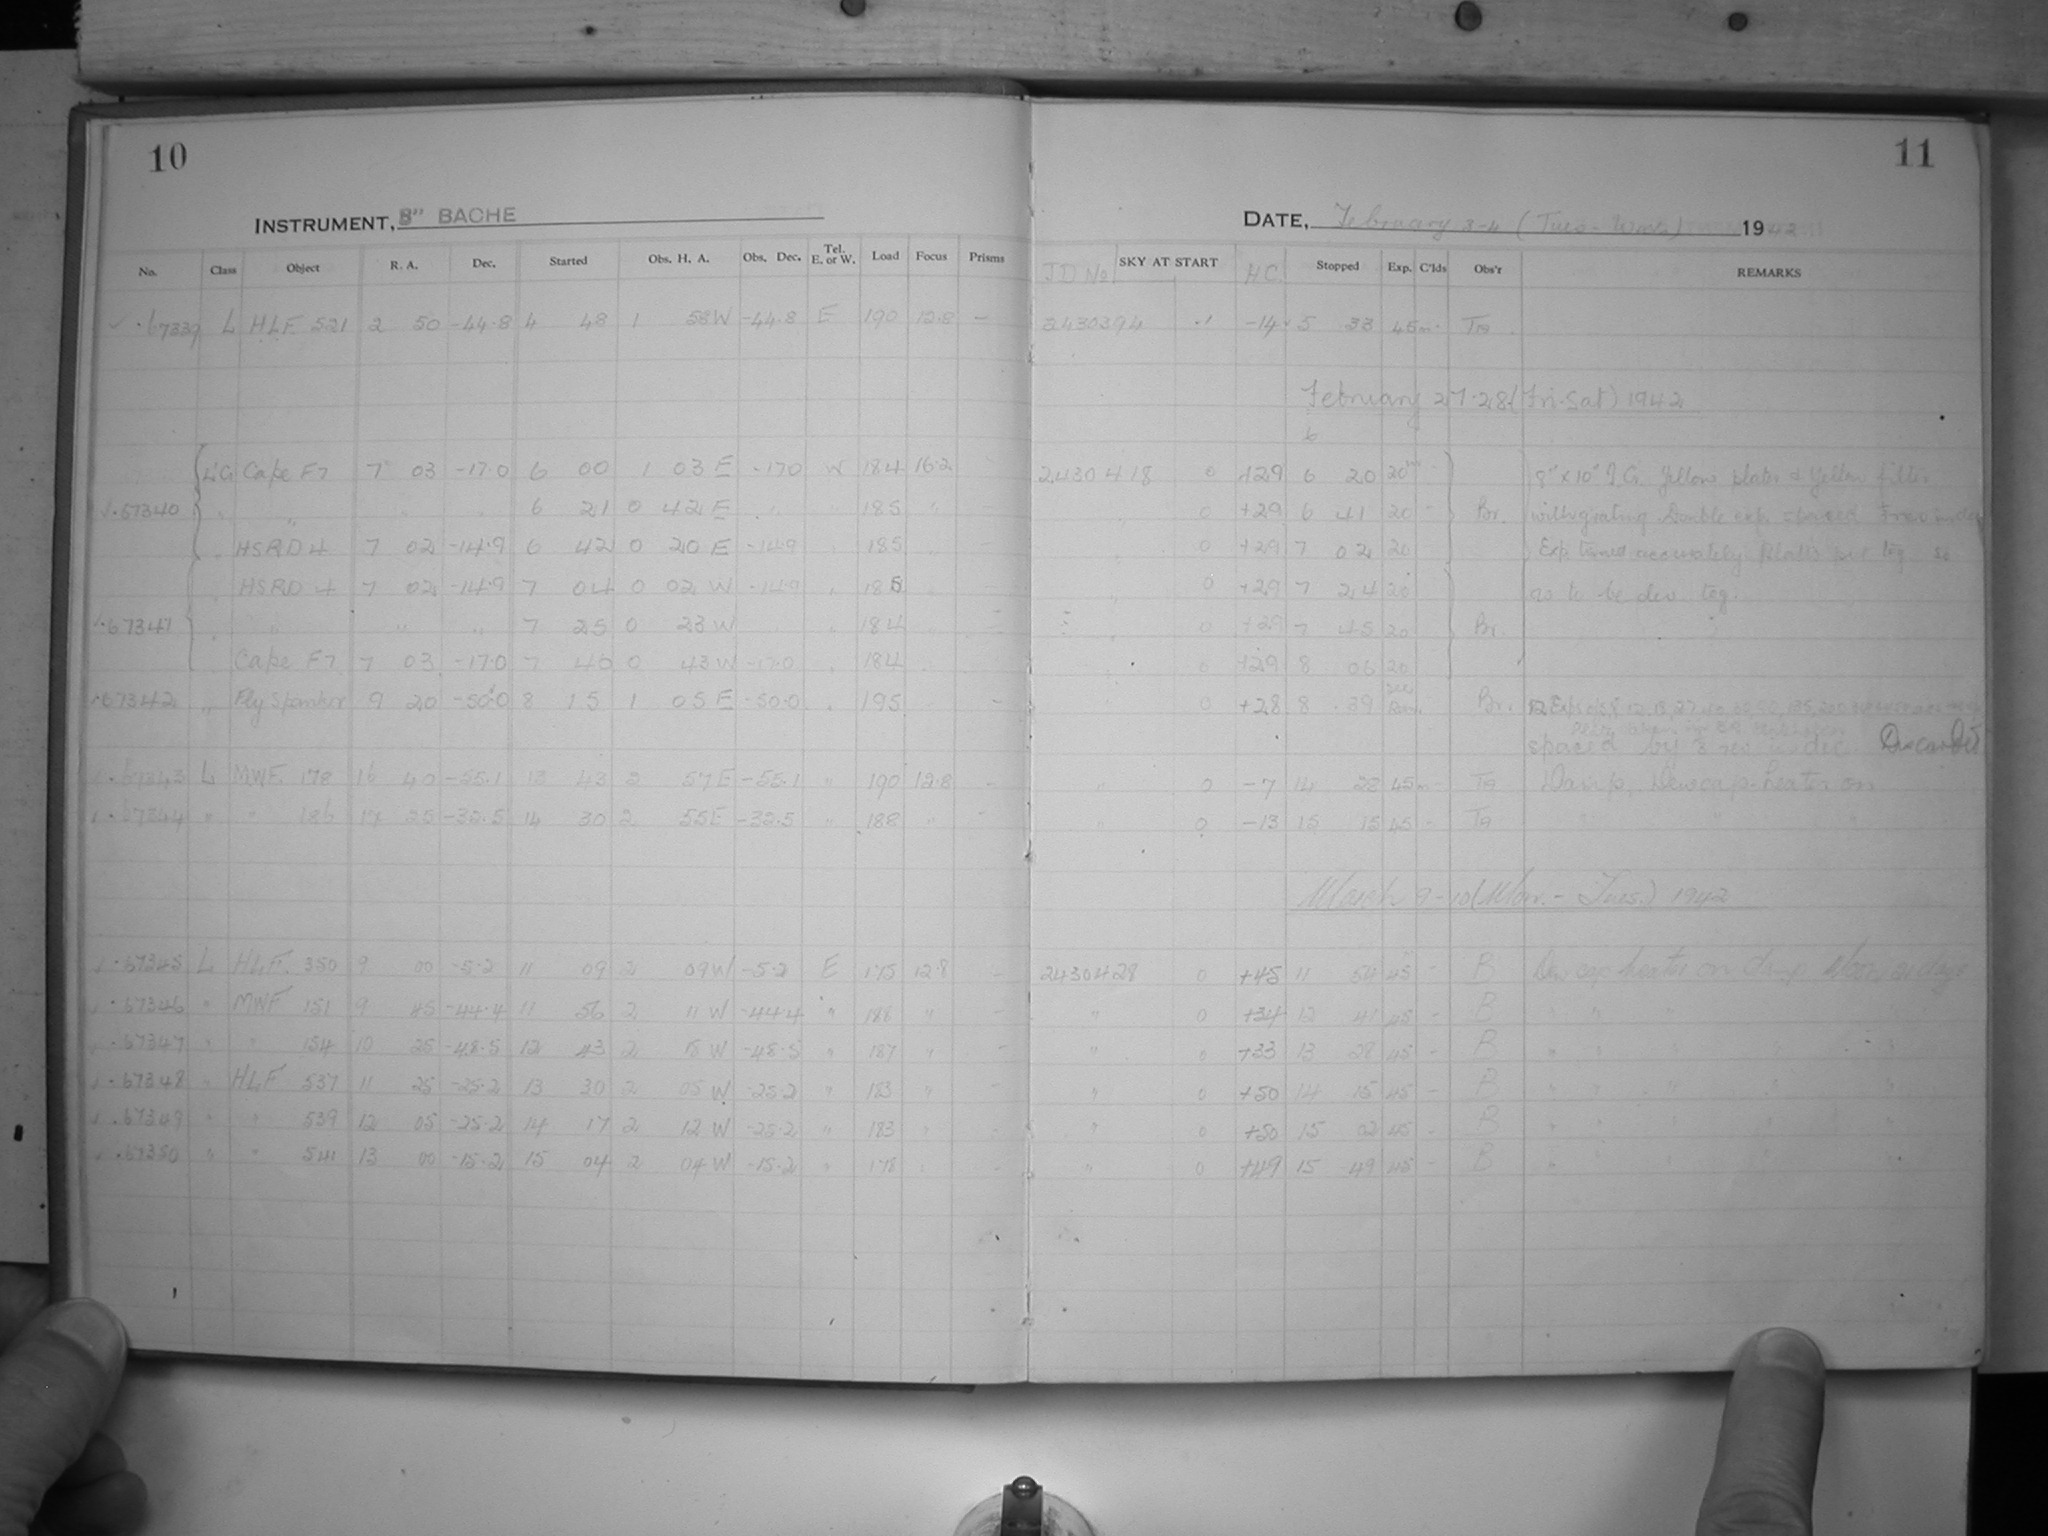 10
INSTRUMENT, 8" BACHE
No. Class Object R. A. Dec. Started Obs. H. A. Obs. Dec. Tel. E. or W. Load Focus Prisms
67339 L HLF 521 2 50 -44.8 4 48 1 58W -44.8 E 190 12.8 -
L'G Cape F7 7 03 -17.0 6 00 1 03 E -17.0 W 184 16.2
67340 " " " 6 21 0 42 E " " 185 "
HSRD 4 7 02 -14.9 6 42 0 20 E -14.9 " 185
HSRD 4 7 02 -14.9 7 04 0 02 W -14.9 " 185
67341 " " " 7 25 0 23 W 184
Cape F7 7 03 -17.0 7 46 0 43 W -17.0 " 184
67342 " 9 20 -50.0 8 15 1 05 E -50.0 " 195 -
67343 L MWF 178 16 40 -55.1 13 43 2 57E -55.1 " 190 12.8 -
67344 " " 186 17 25 -32.5 14 30 2 55E -32.5 " 188 " -
67345 L HLF 350 9 00 -5.2 11 09 2 09W -5.2 E 175 12.8 -
67346 " MWF 151 9 45 -44.4 11 56 2 11 W -44.4 " 188 " -
67347 " " 154 10 25 -48.5 12 43 2 18 W -48.5 " 187 " -
67348 " HLF 537 11 25 -25.2 13 30 2 05 W -25.2 " 183 " -
67349 " " 539 12 05 -25.2 14 17 2 12 W -25.2 " 183 " -
67350 " " 541 13 00 -15.2 15 04 2 04 W -15.2 " 178 -
11
DATE, February 3-4 (Tues - Wed) 1942
JD No SKY AT START H.C. Stopped Exp. C'lds Obs'r REMARKS
2430394 -14 5 33 45m Ta
February 27-28 (Fri-Sat) 1942
2430418 0 +29 6 20 20 8" x 10" Yellow plates & Yellow filter
" 0 +29 6 41 20 - Br. with grating Double exp. spaced
" 0 +29 7 02 20 Exp. timed accurately
" 0 +29 7 24 20 to be dev. tog.
" 0 +29 7 45 20 Br.
" 0 +29 8 06 20
" 0 +28 8 39 Br.
spaced by Discarded
" 0 -7 14 28 45m Ta Damp, Dewcap-heater on
" 0 -13 15 15 45 - Ta " " "
March 9-10 (Mon. - Tues.) 1942
2430428 0 +45 11 54 45 - B Dewcap heater on damp
" 0 +34 12 41 45 - B " " "
" 0 +33 13 28 45 - B " " "
" 0 +50 14 15 45 - B " " "
" 0 +50 15 02 45 - B " " "
" 0 +49 15 49 45 - B " " "